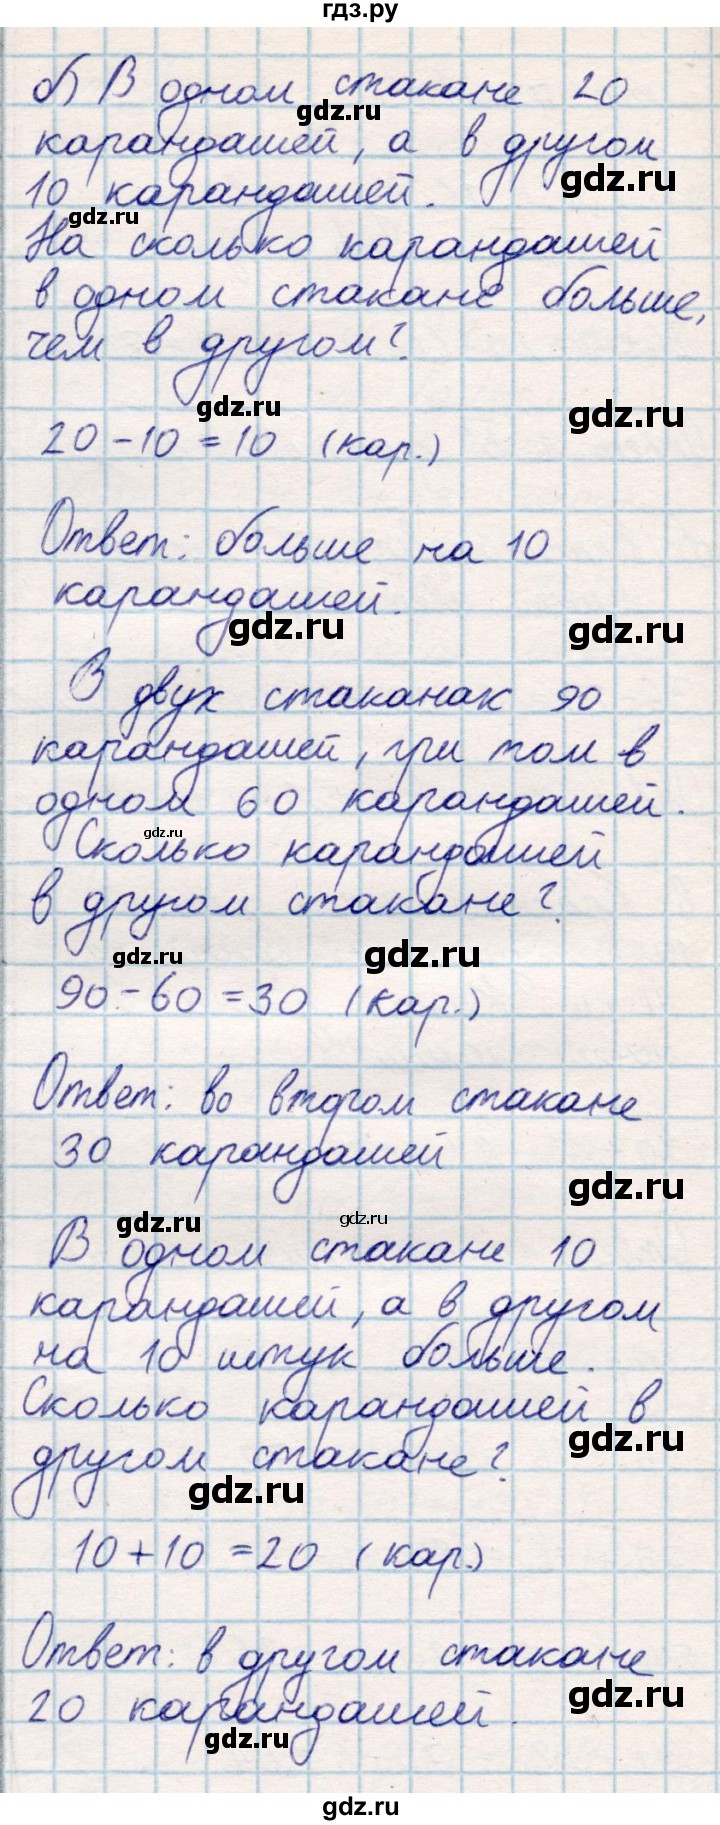 гдз.ру
б) В одном стакане 20
gdz.ru
карандашей, а в другом
gdz.ru
10 карандашей.
gdz.ru
На сколько карандашей
в одном стакане больше,
чем в другом?
gdz.ru
gdz.ru
20 - 10 = 10 (кар.)
Ответ: больше на 10
карандашей.
gdz.ru
gdz.ru
В двух стаканак 90
карандашей, при том в
одном 60 карандашей.
gdz.ru
Сколько карандашей
в другом стакане?
gdz.ru
gdz.ru
90 - 60 = 30 (кар.)
Ответ: во втором стакане
30 карандашей
gdz.ru
gdz.ru
gdz.ru
В одном стакане 10
карандашей, а в другом
на 10 штук больше.
Сколько карандашей в
gdz.ru
другом стакане?
gdz.ru
10 + 10 = 20 (кар.)
Ответ: в другом стакане
gdz.ru
20 карандашей.
gdz.ru
gdz.ru